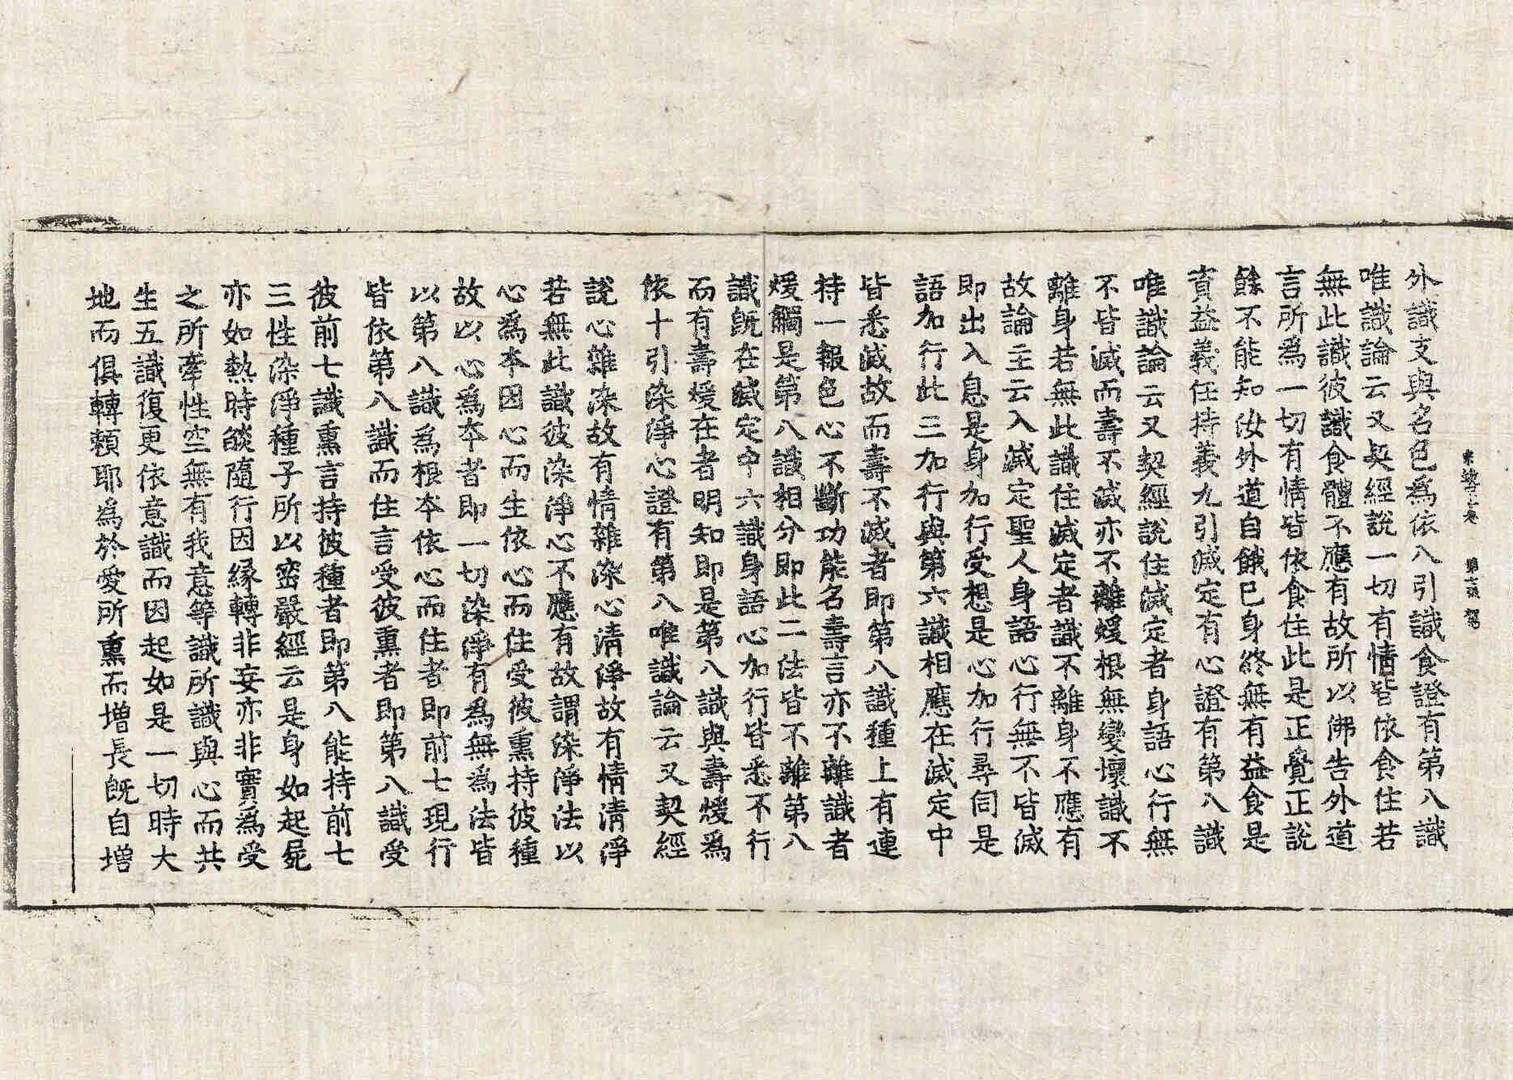 外識支與名色爲依八引識食證有第八識
唯識論云又契經說一切有情皆依食住若
無此識彼識食體不應有故所以佛告外道
言所爲一切有情皆依食住此是正覺正說
餘不能知汝外道自餓已身終無有益食是
資益義任持義九引滅定有心證有第八識
唯識論云又契經說住滅定者身語心行無
不皆滅而壽不滅亦不離煖根無變壞識不
離身若無此識住滅定者識不離身不應有
故論主云入滅定聖人身語心行無不皆滅
即出入息是身加行受想是心加行尋伺是
語加行此三加行與第六識相應在滅定中
皆悉滅故而壽不滅者即第八識種上有連
持一報色心不斷功能名壽言亦不離識者
煖觸是第八識相分即此二法皆不離第八
識旣在滅定中六識身語心加行皆悉不行
而有壽煖在者明知即是第八識與壽煖爲
依十引染淨心證有第八唯識論云又契經
說心雜染故有情雜染心清淨故有情清淨
若無此識彼染淨心不應有故謂染淨法以
心爲本因心而生依心而住受彼熏持彼種
故以心爲本者即一切染淨有爲無爲法皆
以第八識爲根本依心而住者即前七現行
皆依第八識而住言受彼熏者即第八識受
彼前七識熏言持彼種者即第八能持前七
三性染淨種子所以密嚴經云是身如起屍
亦如熱時燄隨行因緣轉非妄亦非實爲受
之所牽性空無有我意等識所識與心而共
生五識復更依意識而因起如是一切時大
地而俱轉賴耶爲於愛所熏而增長旣自增